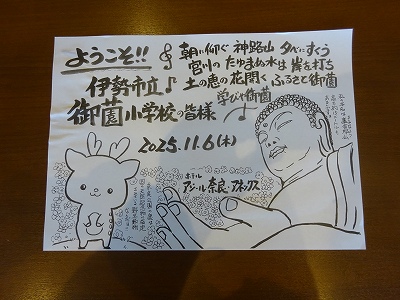 ようこそ!!
伊勢市立
御薗小学校の皆様
朝に仰ぐ 神路山 夕べにすくう
宮川の たゆまぬ水は 岸を打ち
土の恵の 花開く ふるさと御薗
学びや御薗
2025.11.6(木)
ホテル
アジール奈良アネックス